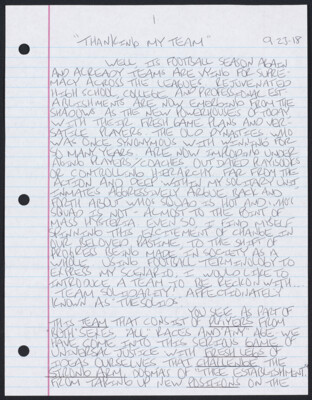 1
"THANKING MY TEAM" 9-23-18
WELL IT'S FOOTBALL SEASON AGAIN
AND ALREADY TEAMS ARE VYING FOR SUPRE-
MACY ACROSS THE LEAGUES. REJUVENATED
HIGH SCHOOL, COLLEGE, AND PROFESSIONAL EST-
ABLISHMENTS ARE NOW EMERGING FROM THE
SHADOWS AS THE NEW POWERHOUSES OF TODAY
WITH THEIR FRESH GAME PLANS AND VER-
SATILE PLAYERS. THE OLD DYNASTIES WHO
WAS ONCE SYNONYMOUS WITH WINNING FOR
SO MANY YEARS ARE NOW IMPLODING UNDER
AGING PLAYERS/COACHES, OUTDATED PLAYBOOKS
OR CONTROLLING HIERARCHY. FAR FROM THE
ACTION AND DEEP WITHIN MY SOLITARY UNIT
INMATES ADDRESSING ABOVE BACK AND
FORTH ABOUT WHO'S SQUAD IS HOT AND WHO'S
SQUAD IS NOT - ALMOST TO THE POINT OF
MASS HYSTERIA. EVEN SO, I FIND MYSELF
LIKENING THIS EXCITEMENT OF CHANGE IN
OUR BELOVED PASTIME, TO THE SHIFT OF
PROGRESS BEING MADE IN SOCIETY AS A
WHOLE. USING FOOTBALL TERMINOLOGY TO
EXPRESS MY SCENARIO, I WOULD LIKE TO
INTRODUCE A TEAM TO BE RECKON WITH...
"TEAM SOLIDARITY" AFFECTIONATELY
KNOWN AS THE SOLIDS.
YOU SEE AS PART OF
THIS TEAM THAT CONSIST OF PLAYERS FROM
BOTH SEXES, ALL RACES AND ANY AGE, WE
HAVE COME INTO THIS SERIOUS GAME OF
UNIVERSAL JUSTICE WITH FRESH LEGS OF
IDEAS OURSELVES THAT CHALLENGE THE
STRONG ARM, DOGMAS OF "THEE ESTABLISHMENT."
FROM TAKING UP NEW POSITIONS ON THE